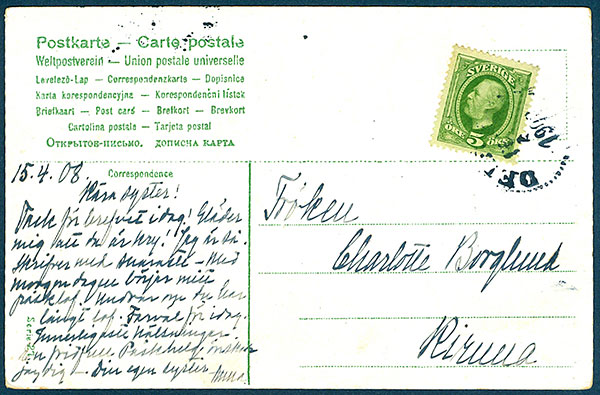 Postkarte — Carte postale
Weltpostverein — Union postale universelle
Levelező-Lap — Correspondenzkarte — Dopisnice
Karta korespondencyjna — Korespondenční lístek
Briefkaart — Post card — Brefkort — Brevkort
Cartolina postale — Tarjeta postal
Открытое-письмо. дописна карта
SVERIGE
ÖRE 5 ÖRE
15.4.08.
Correspondence
Kära syster!
Tack för brefvet i dag! Gläder
mig att du är kry! Jag är så.
Skrifver med snaraste - Med
morgondagen börjar mitt
påsklof. Undrar om du har
långt lof. Farväl för i dag.
Innerligaste hälsningar
En fridfull Påskhelg önskar
jag dig - Din egen syster
Fröken
Charlotte Borglund
Kiruna
Serie